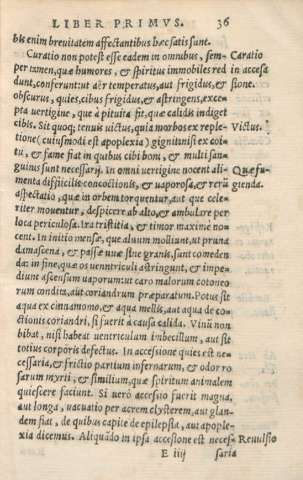 LIBER PRIMVS. 36
bis enim breuitatem affectantibus hæc satis sunt.
Curatio non potest esse eadem in omnibus, sem- Caratio
per tamen, quæ humores, & spiritus immobiles red in accesa
dunt, conferunt: ut aër temperatus, aut frigidus, & sione.
obscurus, quies, cibus frigidus, & astringens, exce-
pta uertigine, quæ à pituita fit, quæ calidis indiget
cibis. Sit quoq; tenuis uictus, quia morbos ex reple- Victus.
tione (cuiusmodi est apoplexia) gigni nisi ex coi-
tu, & fame fiat in quibus cibi boni, & multi san-
guinus sunt necessarij. In omni uertigine nocent ali- Quæ fu-
menta difficilis concoctionis, & uaporosa, & rerũ gienda.
aspectatio, quæ in orbem torquentur, aut quæ cele-
riter mouentur, despicere ab alto, & ambulare per
loca periculosa. Ira tristitia, & timor maximè no-
cent. In initio mensæ, quæ aluum molliunt, ut pruna
damascena, & passæ uuæ sine granis, sunt comeden
da: in fine, quæ os uentriculi astringunt, & impe-
diunt ascensum uaporum: ut caro malorum cotoneo
rum condita, aut coriandrum præparatum. Potus sit
aqua ex cinnamomo, & aqua mellis, aut aqua de co-
ctionis coriandri, si fuerit à causa calida. Vinũ non
bibat, nisi habeat uentriculum imbecillum, aut sit
totius corporis defectus. In accessione quies est ne-
cessaria, & frictio partium infernarum, & odor ro
sarum myrti, & similium, quæ spiritum animalem
quiescere faciunt. Si uerò accessio fuerit magna,
aut longa, uacuatio per acrem clysterem, aut glan-
dem fiat, de quibus capite de epilepsia, aut apople-
xia dicemus. Aliquãdo in ipsa accessione est neces- Reuulsio
E iiij saria